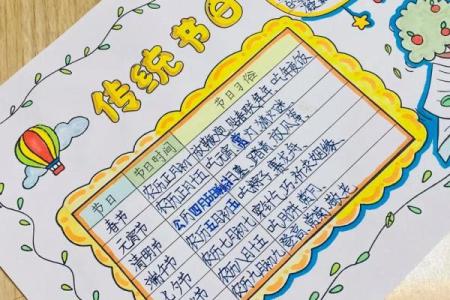 传统节日
节日 节日时间 节日习俗
春节 农历正月初一 放鞭炮 贴春联 拜年 吃年夜饭
元宵节 农历正月十五 吃元宵 赏灯 猜灯谜
清明节 公历四月 踏青 放风筝
端午节 农历五月初五 吃粽子 赛龙舟
七夕节 农历七月初七 穿针乞巧 祈求姻缘
农历八月十五 吃月饼 赏月
农历九月初九 登高 赏菊 敬老